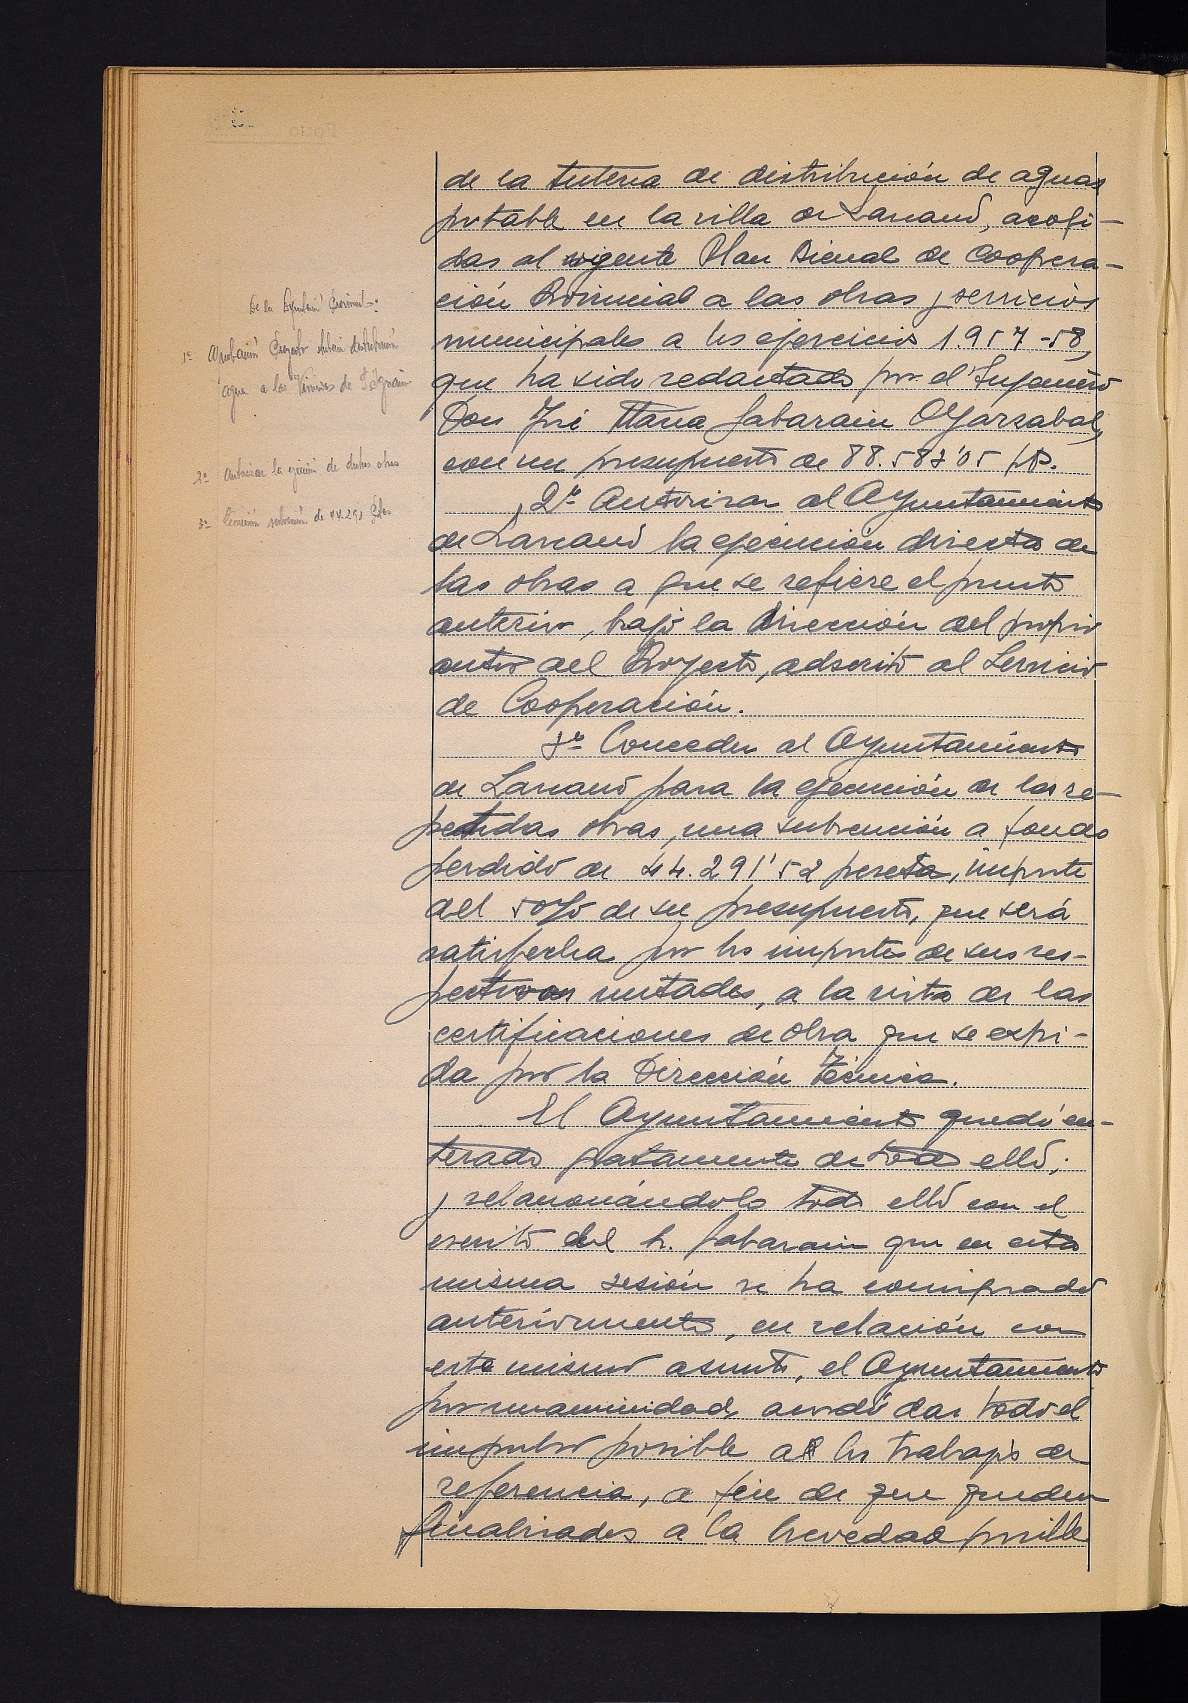 De la Diputación Provincial:
1º Aprobación Proyecto tubería distribución
agua a los términos de S. Ignacio
2º Autorizar la ejecución de dichas obras
3º Concesión subvención de 44.291 Ptas
de la tubería de distribución de aguas
potable en la villa de Larraul, acogi-
das al vigente Plan Bienal de Coopera-
ción Provincial a las obras y servicios
municipales a los ejercicios 1.957-58,
que ha sido redactado por el Ingeniero
Don José María Gabarain Oyarzabal,
con un presupuesto de 88.583'05 pts.
2º Autorizar al Ayuntamiento
de Larraul la ejecución directa de
las obras a que se refiere el punto
anterior, bajo la Dirección del propio
autor del Proyecto, adscrito al Servicio
de Cooperación.
3º Conceder al Ayuntamiento
de Larraul para la ejecución de las re-
petidas obras, una subvención a fondo
perdido de 44.291'52 peseta, importe
del 50% de su presupuesto, que será
satisfecha por los importes de sus res-
pectivas mitades, a la vista de las
certificaciones de obra que se expi-
da por la Dirección Técnica.
El Ayuntamiento quedó en-
terado gratamente de todo ello;
y relacionándolo todo ello con el
escrito del Sr. Gabarain que en esta
misma sesión se ha comiprado
anteriormente, en relación con
este mismo asunto, el Ayuntamiento
por unanimidad, acordó dar todo el
impulso posible a los trabajos de
referencia, a fin de que queden
finalizados a la brevedad posible